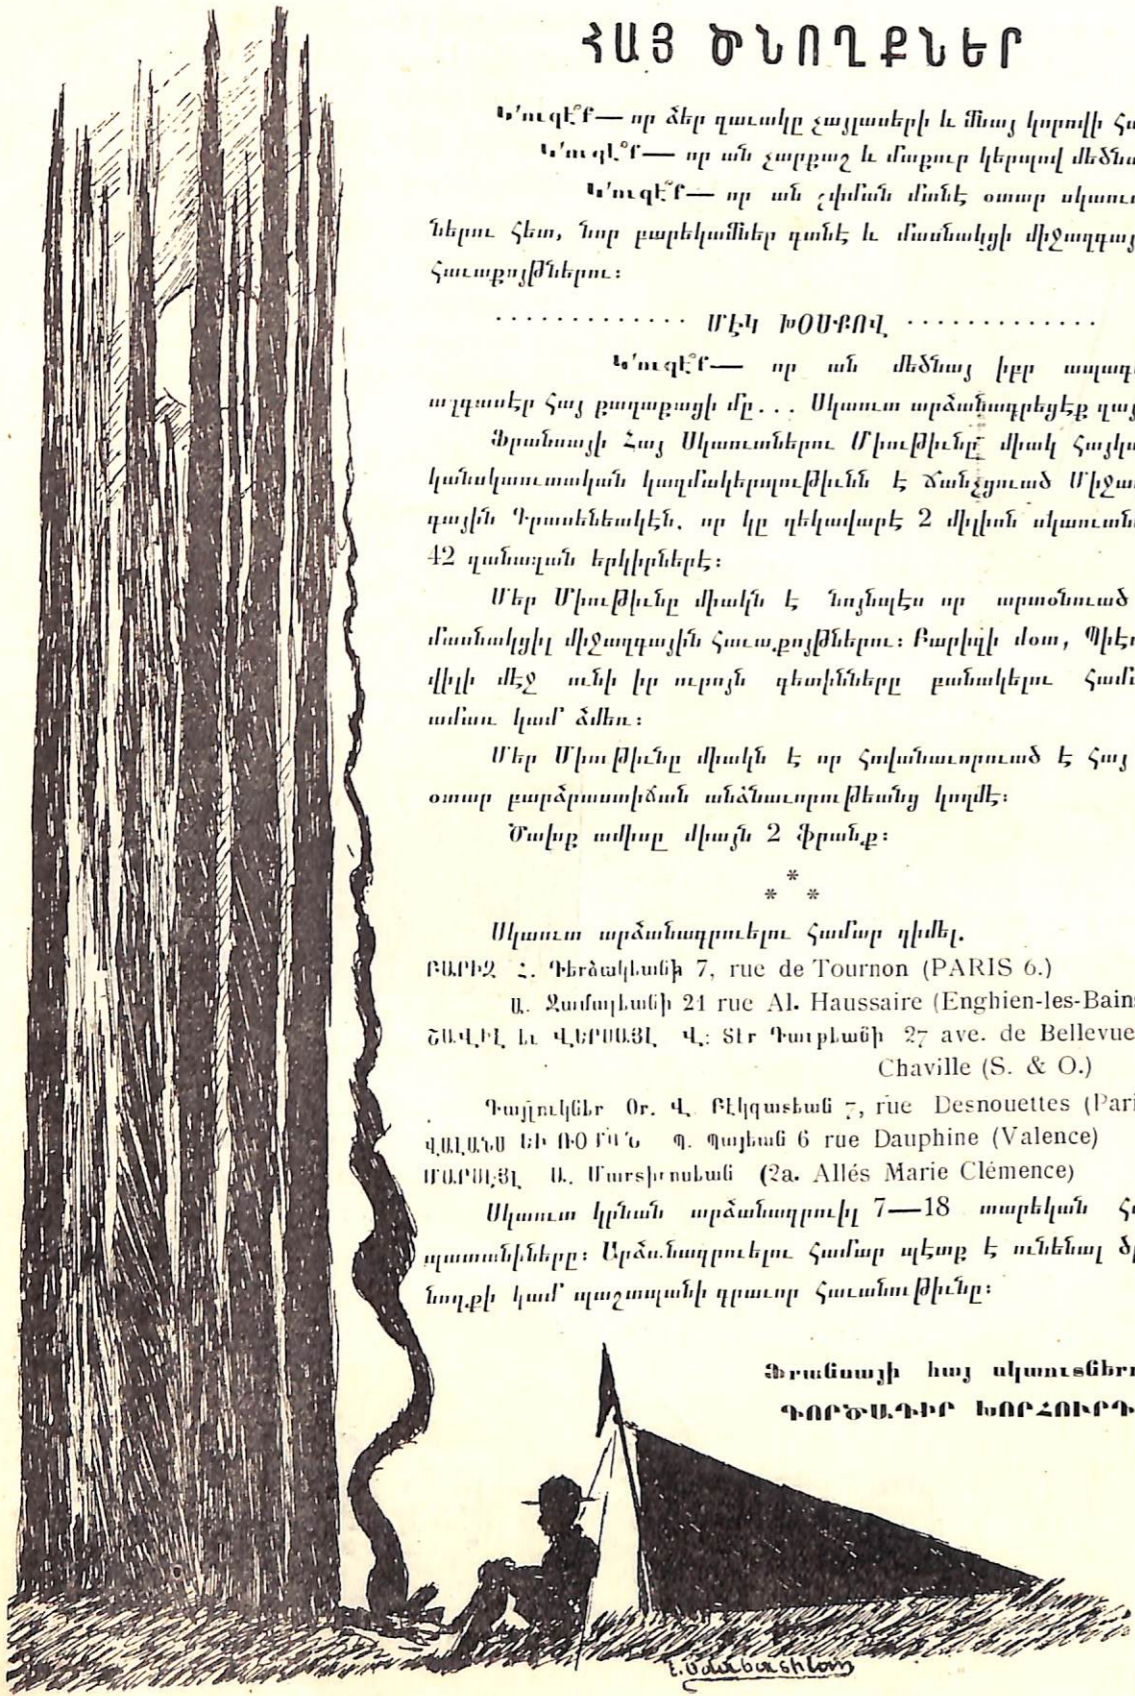 ՀԱՅ ԾՆՈՂՔՆԵՐ
Կ՚ուզէ՞ք— որ ձեր զաւակը չայլասերի և մնայ կորովի հա
Կ՚ուզէ՞ք— որ ան չարքաշ և մաքուր կերպով մեծնա
Կ՚ուզէ՞ք— որ ան շփման մտնէ օտար սկաուտ
ներու հետ, նոր բարեկամներ գտնէ և մասնակցի միջազգայ
հաւաքոյթներու։
............. ՄԷԿ ԽՕՍՔՈՎ .............
Կ՚ուզէ՞ք— որ ան մեծնայ իբր ապագ
ազգասէր հայ քաղաքացի մը... Սկաուտ արձանագրեցէք զայ
Ֆրանսայի Հայ Սկաուտներու Միութիւնը միակ հայկա
կանսկաուտական կազմակերպութիւնն է ճանչցուած Միջազ
գային Գրասենեակէն. որ կը ղեկավարէ 2 միլիոն սկաուտնե
42 զանազան երկիրներէ։
Մեր Միութիւնը միակն է նոյնպէս որ արտօնուած
մասնակցիլ միջազգային հաւաքոյթներու։ Բարիզի մօտ, Պիէւ
վիլի մէջ ունի իր ուրոյն գետինները բանակելու համա
ամառ կամ ձմեռ։
Մեր Միութիւնը միակն է որ հովանաւորուած է հայ
օտար բարձրաստիճան անձնաւորութեանց կողմէ։
Ծախք ամիսը միայն 2 ֆրանք։
*
* *
Սկաուտ արձանագրուելու համար դիմել.
ԲԱՐԻԶ Հ. Դերձակեանի 7, rue de Tournon (PARIS 6.)
Ա. Զամալեանի 21 rue Al. Haussaire (Enghien-les-Bains
ՇԱՎԻԼ եւ ՎԵՐՍԱՅԼ Վ. Տէր Դաւթեանի 27 ave. de Bellevue
Chaville (S. & O.)
Գայլուկներ Օր. Վ. Բէկզատեան 7, rue Desnouettes (Pari
ՎԱԼԱՆՍ ԵՒ ՌՕՄԱՆ Պ. Պալեան 6 rue Dauphine (Valence)
ՄԱՐՍԷՅԼ Ա. Մարտիրոսեան (2a. Allés Marie Clémence)
Սկաուտ կրնան արձանագրուիլ 7—18 տարեկան հա
պատանիները։ Արձանագրուելու համար պէտք է ունենալ ծը
նողքի կամ պաշտպանի գրաւոր հաւանութիւնը։
Ֆրանսայի հայ սկաուտներո
ԳՈՐԾԱԴԻՐ ԽՈՐՀՈՒՐԴ